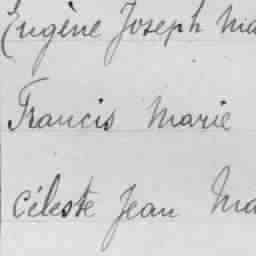 Eugène Joseph Ma
Francis Marie
Céleste Jean Ma